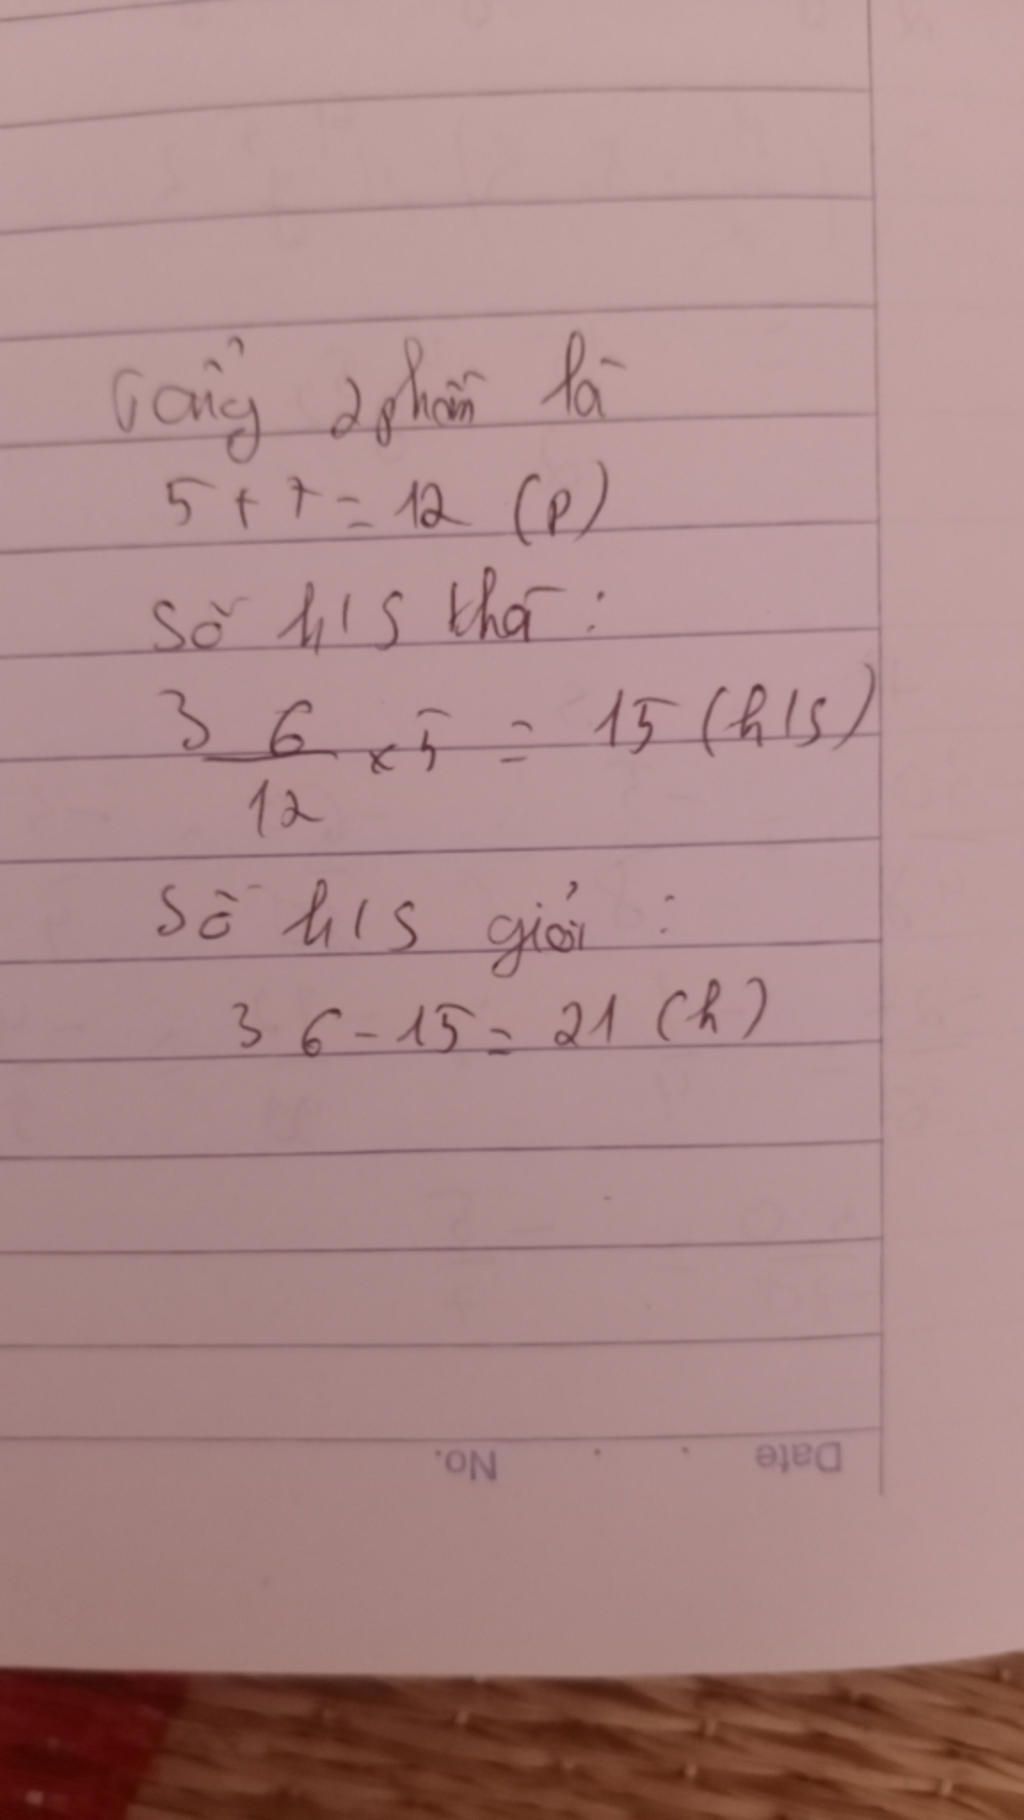 Tổng 2 phần là
5 + 7 = 12 (p)
Số h/s khá :
36/12 × 5 = 15 (h/s)
Số h/s giỏi :
36 - 15 = 21 (h)
No. Date